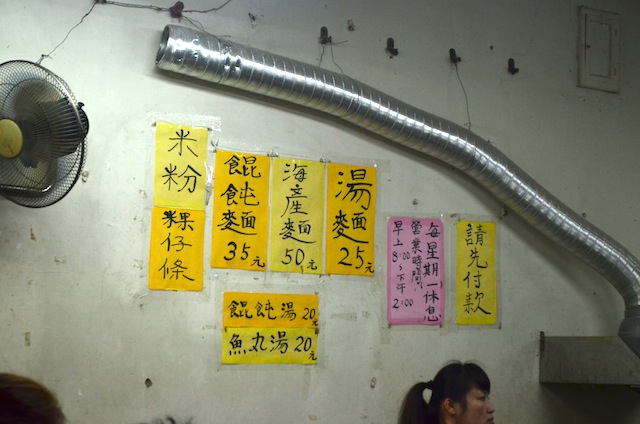 米粉
粿仔條
餛飩麵35元
海產麵50元
湯麵25元
餛飩湯20元
魚丸湯20元
每星期一休息
營業時間
早上8:00~下午2:00
請先付款